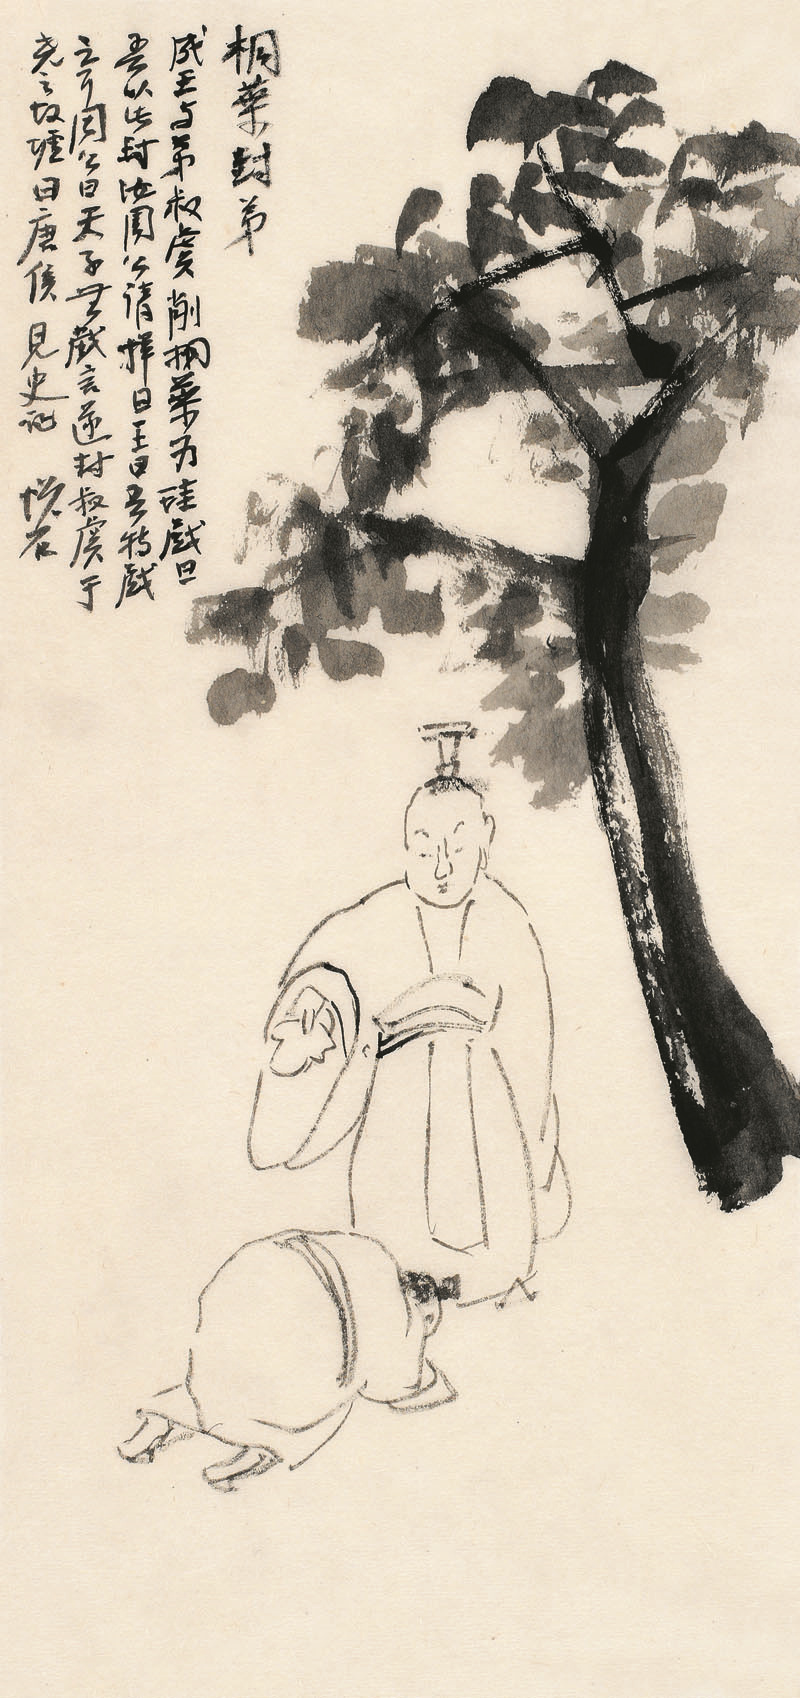 桐葉封弟
成王与弟叔虞削桐葉为珪戲曰
吾以此封汝周公请择日王曰吾特戲
之耳周公曰天子無戲言遂封叔虞于
尧之故墟曰唐侯 见史记